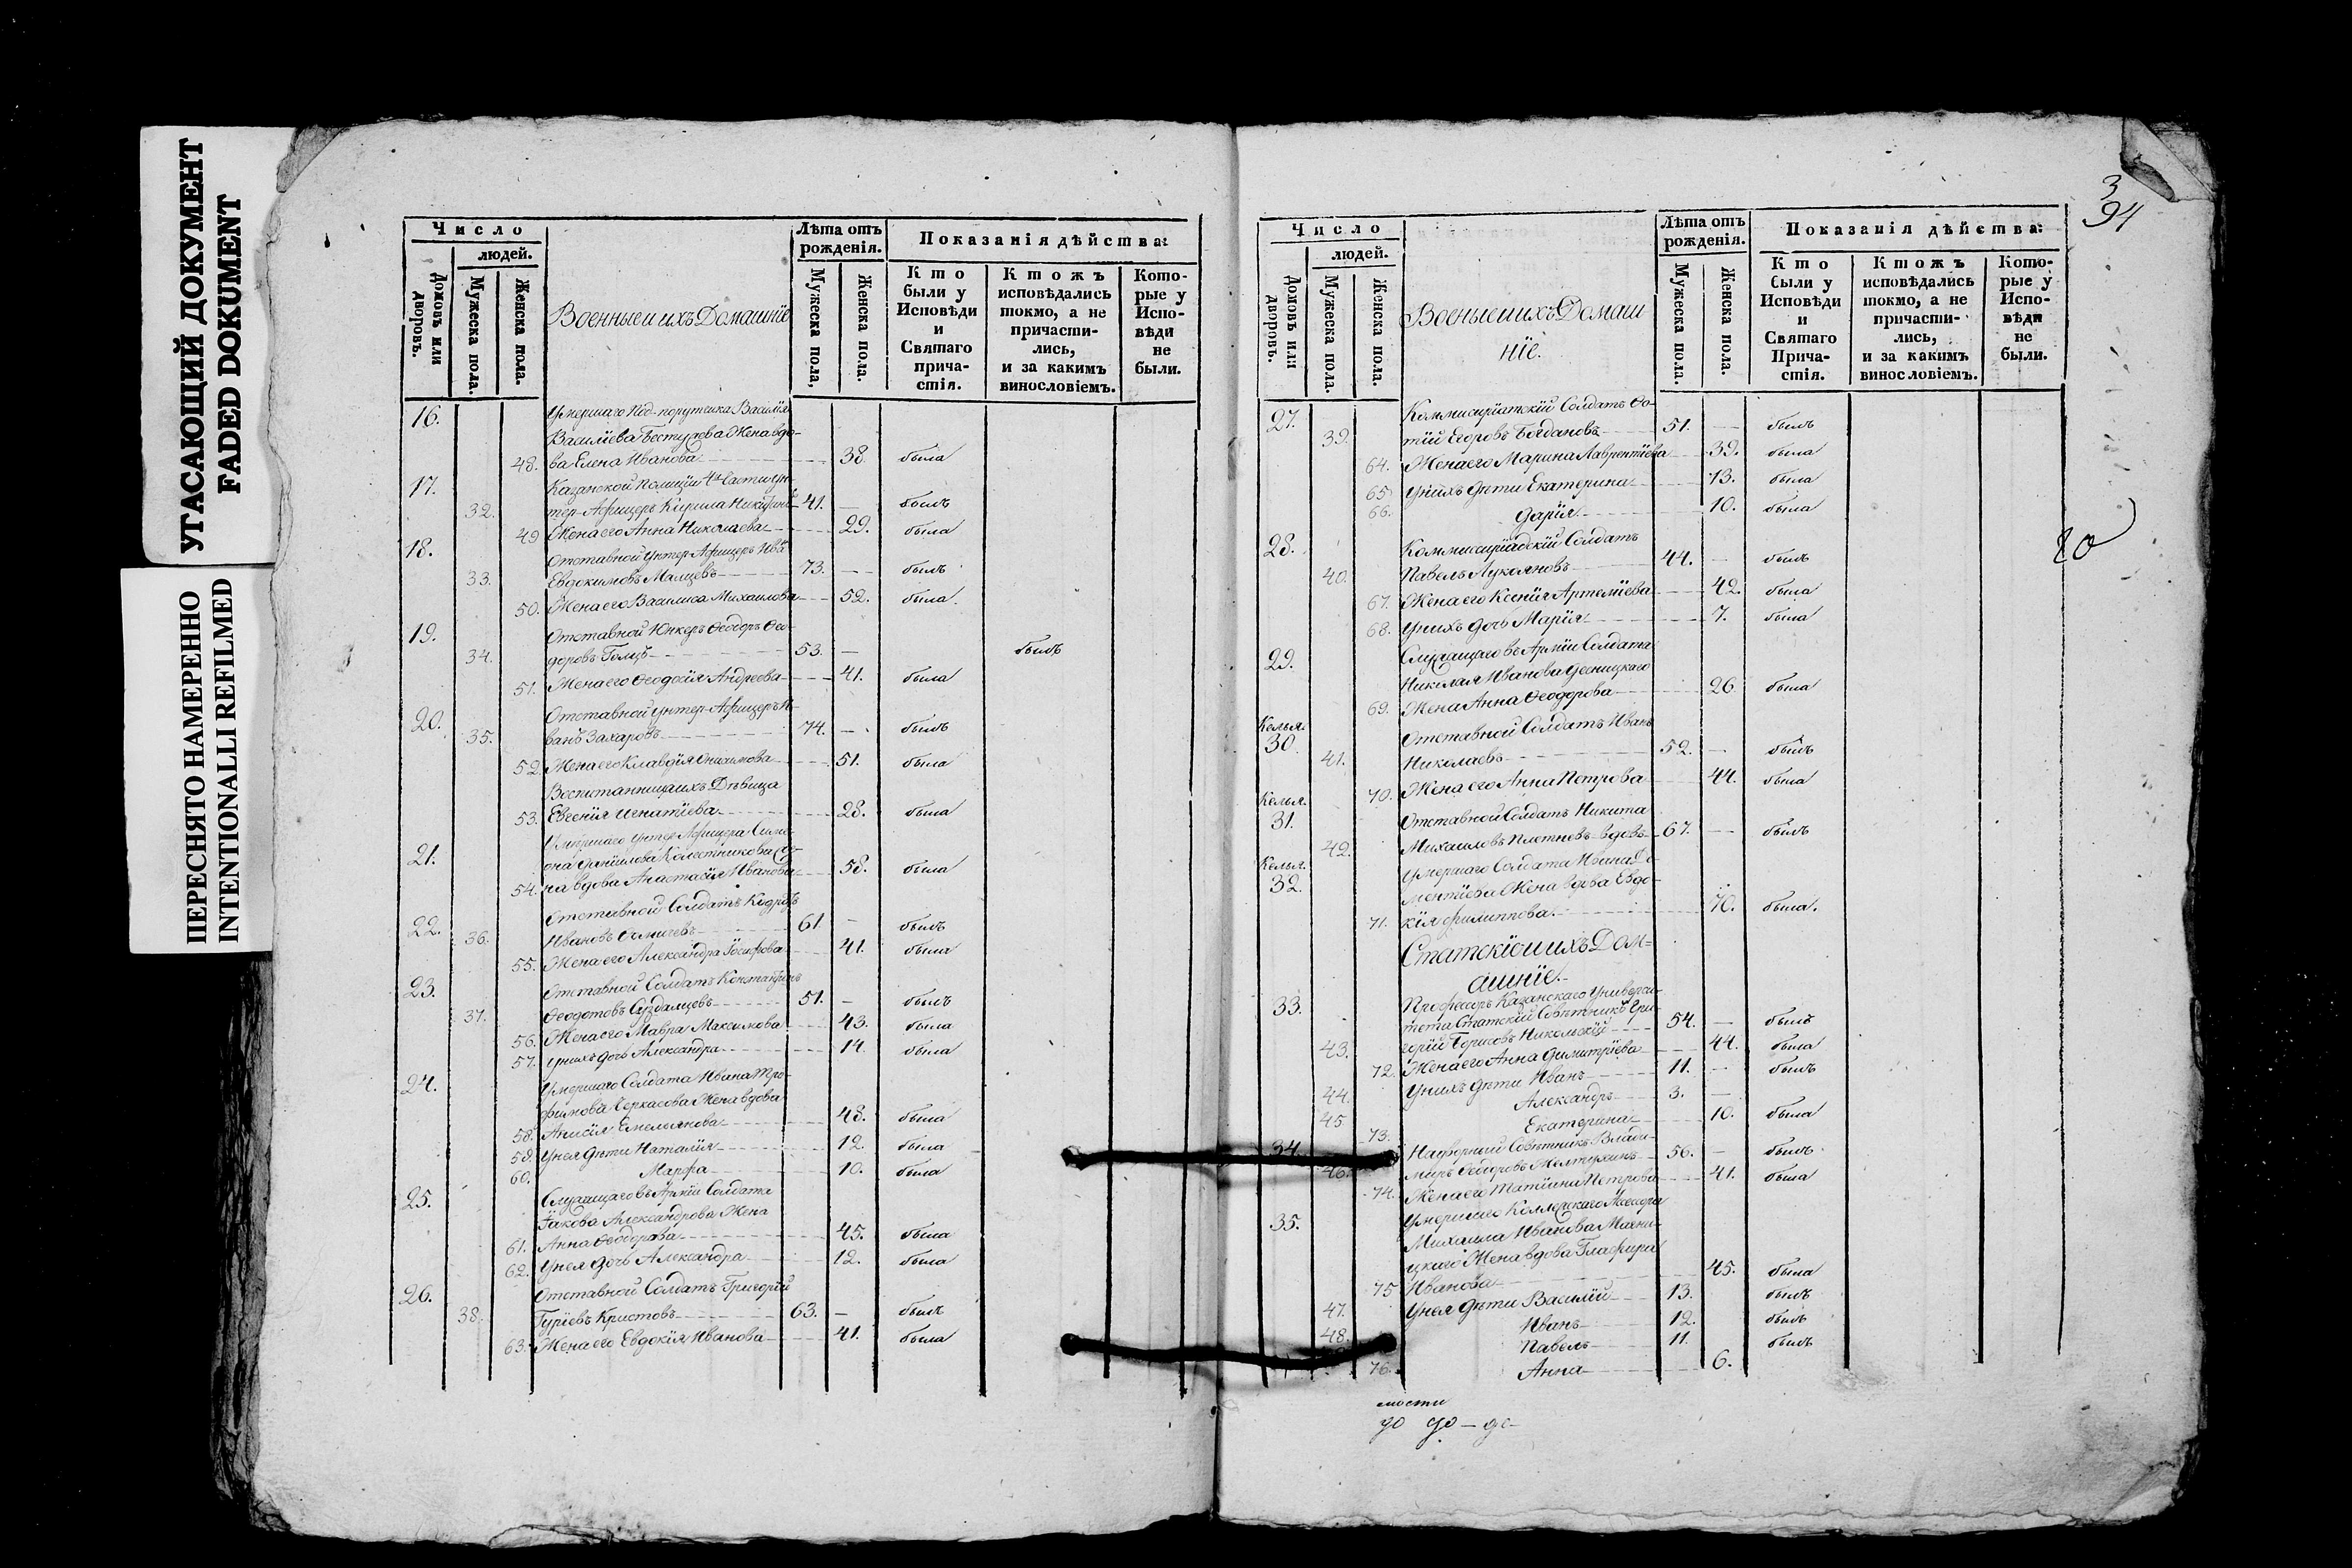 УГАСАЮЩИЙ ДОКУМЕНТ
FADED DOKUMENT
ПЕРЕСНЯТО НАМЕРЕННО
INTENTIONALLI REFILMED
Число
людей.
Домовъ или дворовъ.
Мужеска пола.
Женска пола.
Военные и ихъ Домашніе
Лѣта отъ рожденія.
Мужеска пола.
Женска пола.
Показанія дѣйства:
Кто были у Исповѣди и Святаго причастія.
Ктожъ исповѣдались токмо, а не причастились, и за какимъ винословіемъ.
Которые у Исповѣди не были.
16. Умершаго Под-порутчика Василія
Василіева Бестужева Жена вдо-
48. ва Елена Иванова 38 была
17. Казанской Полиціи 4й Части Ун-
32. тер-Афицеръ Кирила Никифоровъ 41. — былъ
49 Жена его Анна Николаева 29. была
18. Отставной Унтер-Афицеръ Ива
33. Евдокимовъ Малцевъ 73. — былъ
50. Жена его Василиса Михаилова 52. была
19. Отставной Юнкеръ Ѳеодоръ Ѳео-
34. доровъ Голцъ 53. — былъ
51. Жена его Ѳеодосія Андреева 41. была
20. Отставной Унтер-Афицеръ И-
35. ванъ Захаровъ 74. — былъ
52. Жена его Клавдія Онисимова 51. была
Воспитанница ихъ Дѣвица
53. Евгенія Игнатіева 28. была
21. Умершаго Унтер Афицера Симе-
она Данилова Колесникова Же-
54. на вдова Анастасія Иванова 58. была
22. Отставной Солдатъ Кодратъ
36. Ивановъ 61 — былъ
55. Жена его Александра Іосифова 41. была
23. Отставной Солдатъ Константинъ
37. Ѳеодотовъ Суздалцевъ 51. — былъ
56. Жена его Мавра Максимова 43. была
57. У нихъ дочь Александра 14 была
24. Умершаго Солдата Ивана Тро-
фимова Черкасова Жена вдова
58. Анисія Емельянова 48. была
59. У нея дѣти Наталія 12. была
60. Марфа 10. была
25. Служащаго въ Арміи Солдата
Іакова Александрова Жена
61. Анна Ѳеодорова 45. была
62. У нея дочь Александра 12. была
26. Отставной Солдатъ Григорій
38. Гуріевъ Христовъ 63. — былъ
63. Жена его Евдокія Иванова 41. была
3
94
Число
людей.
Домовъ или дворовъ.
Мужеска пола.
Женска пола.
Военые и ихъ Домаш
ніе.
Лѣта отъ рожденія.
Мужеска пола.
Женска пола.
Показанія дѣйства:
Кто были у Исповѣди и Святаго Причастія.
Ктожъ исповѣдались токмо, а не причастились, и за какимъ винословіемъ.
Которые у Исповѣди не были.
27. Коммисаріатскій Солдатъ Фо-
39. тій Егоровъ Богдановъ 51. — былъ
64. Жена его Марина Лаврентіева 39. была
65 У нихъ дѣти Екатерина 13. была
66. Дарія 10. была
28. Коммисаріадскій Солдатъ
40. Павелъ Лукояновъ 44. — былъ
67. Жена его Ксенія Артеміева 42. была
68. У нихъ дочь Марія 7. была
29. Служащаго въ Арміи Солдата
Николая Иванова Десницкаго
69. Жена Анна Ѳеодорова 26 была
Келья. 30. Отставной Солдатъ Иванъ
41. Николаевъ 52. — былъ
70. Жена его Анна Петрова 44. была
Келья. 31. Отставной Солдатъ Никита
42. Михаиловъ Плетневъ вдовъ 67. — былъ
Келья. 32. Умершаго Солдата Ивана Де-
ментіева Жена вдова Евдо-
71. кія Филиппова 70. была.
Статскіе и ихъ Дом=
ашніе.
33. Профессоръ Казанскаго Универси-
тета Статскій Совѣтникъ Гри-
43. горій Борисовъ Никольскій 54. — былъ
72. Жена его Анна Димитріева 44. была
44. У нихъ дѣти Иванъ 11. — былъ
45 Александръ 3. —
73. Екатерина 10. была
34. Надворный Совѣтникъ Влади-
46. миръ Ѳеодоровъ Желтухинъ 56. — былъ
74. Жена его Татіана Петрова 41. была
35. Умершаго Коллежскаго Ассесора
Михаила Иванова Магни-
цкаго Жена вдова Глафира
75 Иванова 45. была
47. У нея дѣти Василій 13. былъ
48. Иванъ 12. былъ
Павелъ 11. былъ
76. Анна 6.
20
мости
до до — до